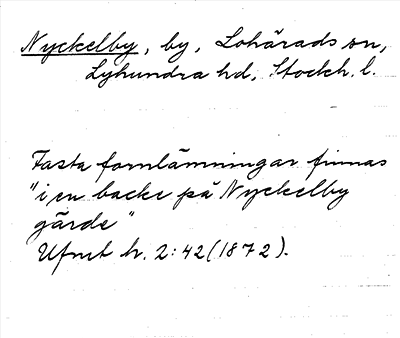 Nyckelby, by, Lohärads sn,
Lyhundra hd, Stockh. l.
Fasta fornlämningar finnas
"i en backe på Nyckelby
gärde"
Ufmt h. 2:42 (1872).